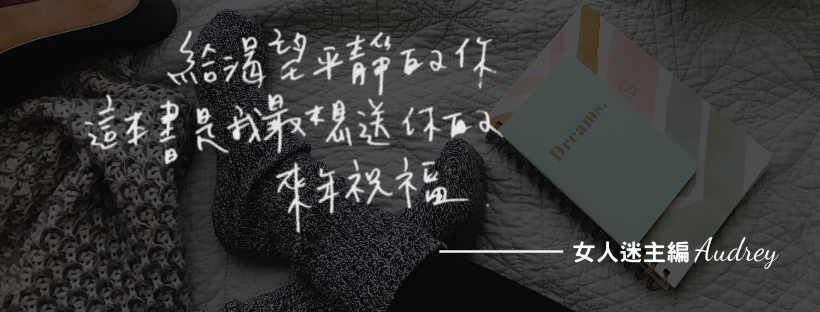 給渴望平靜的你
這本書是我最想送你的
來年祝福
女人迷主編 Audrey
Dreams.
S